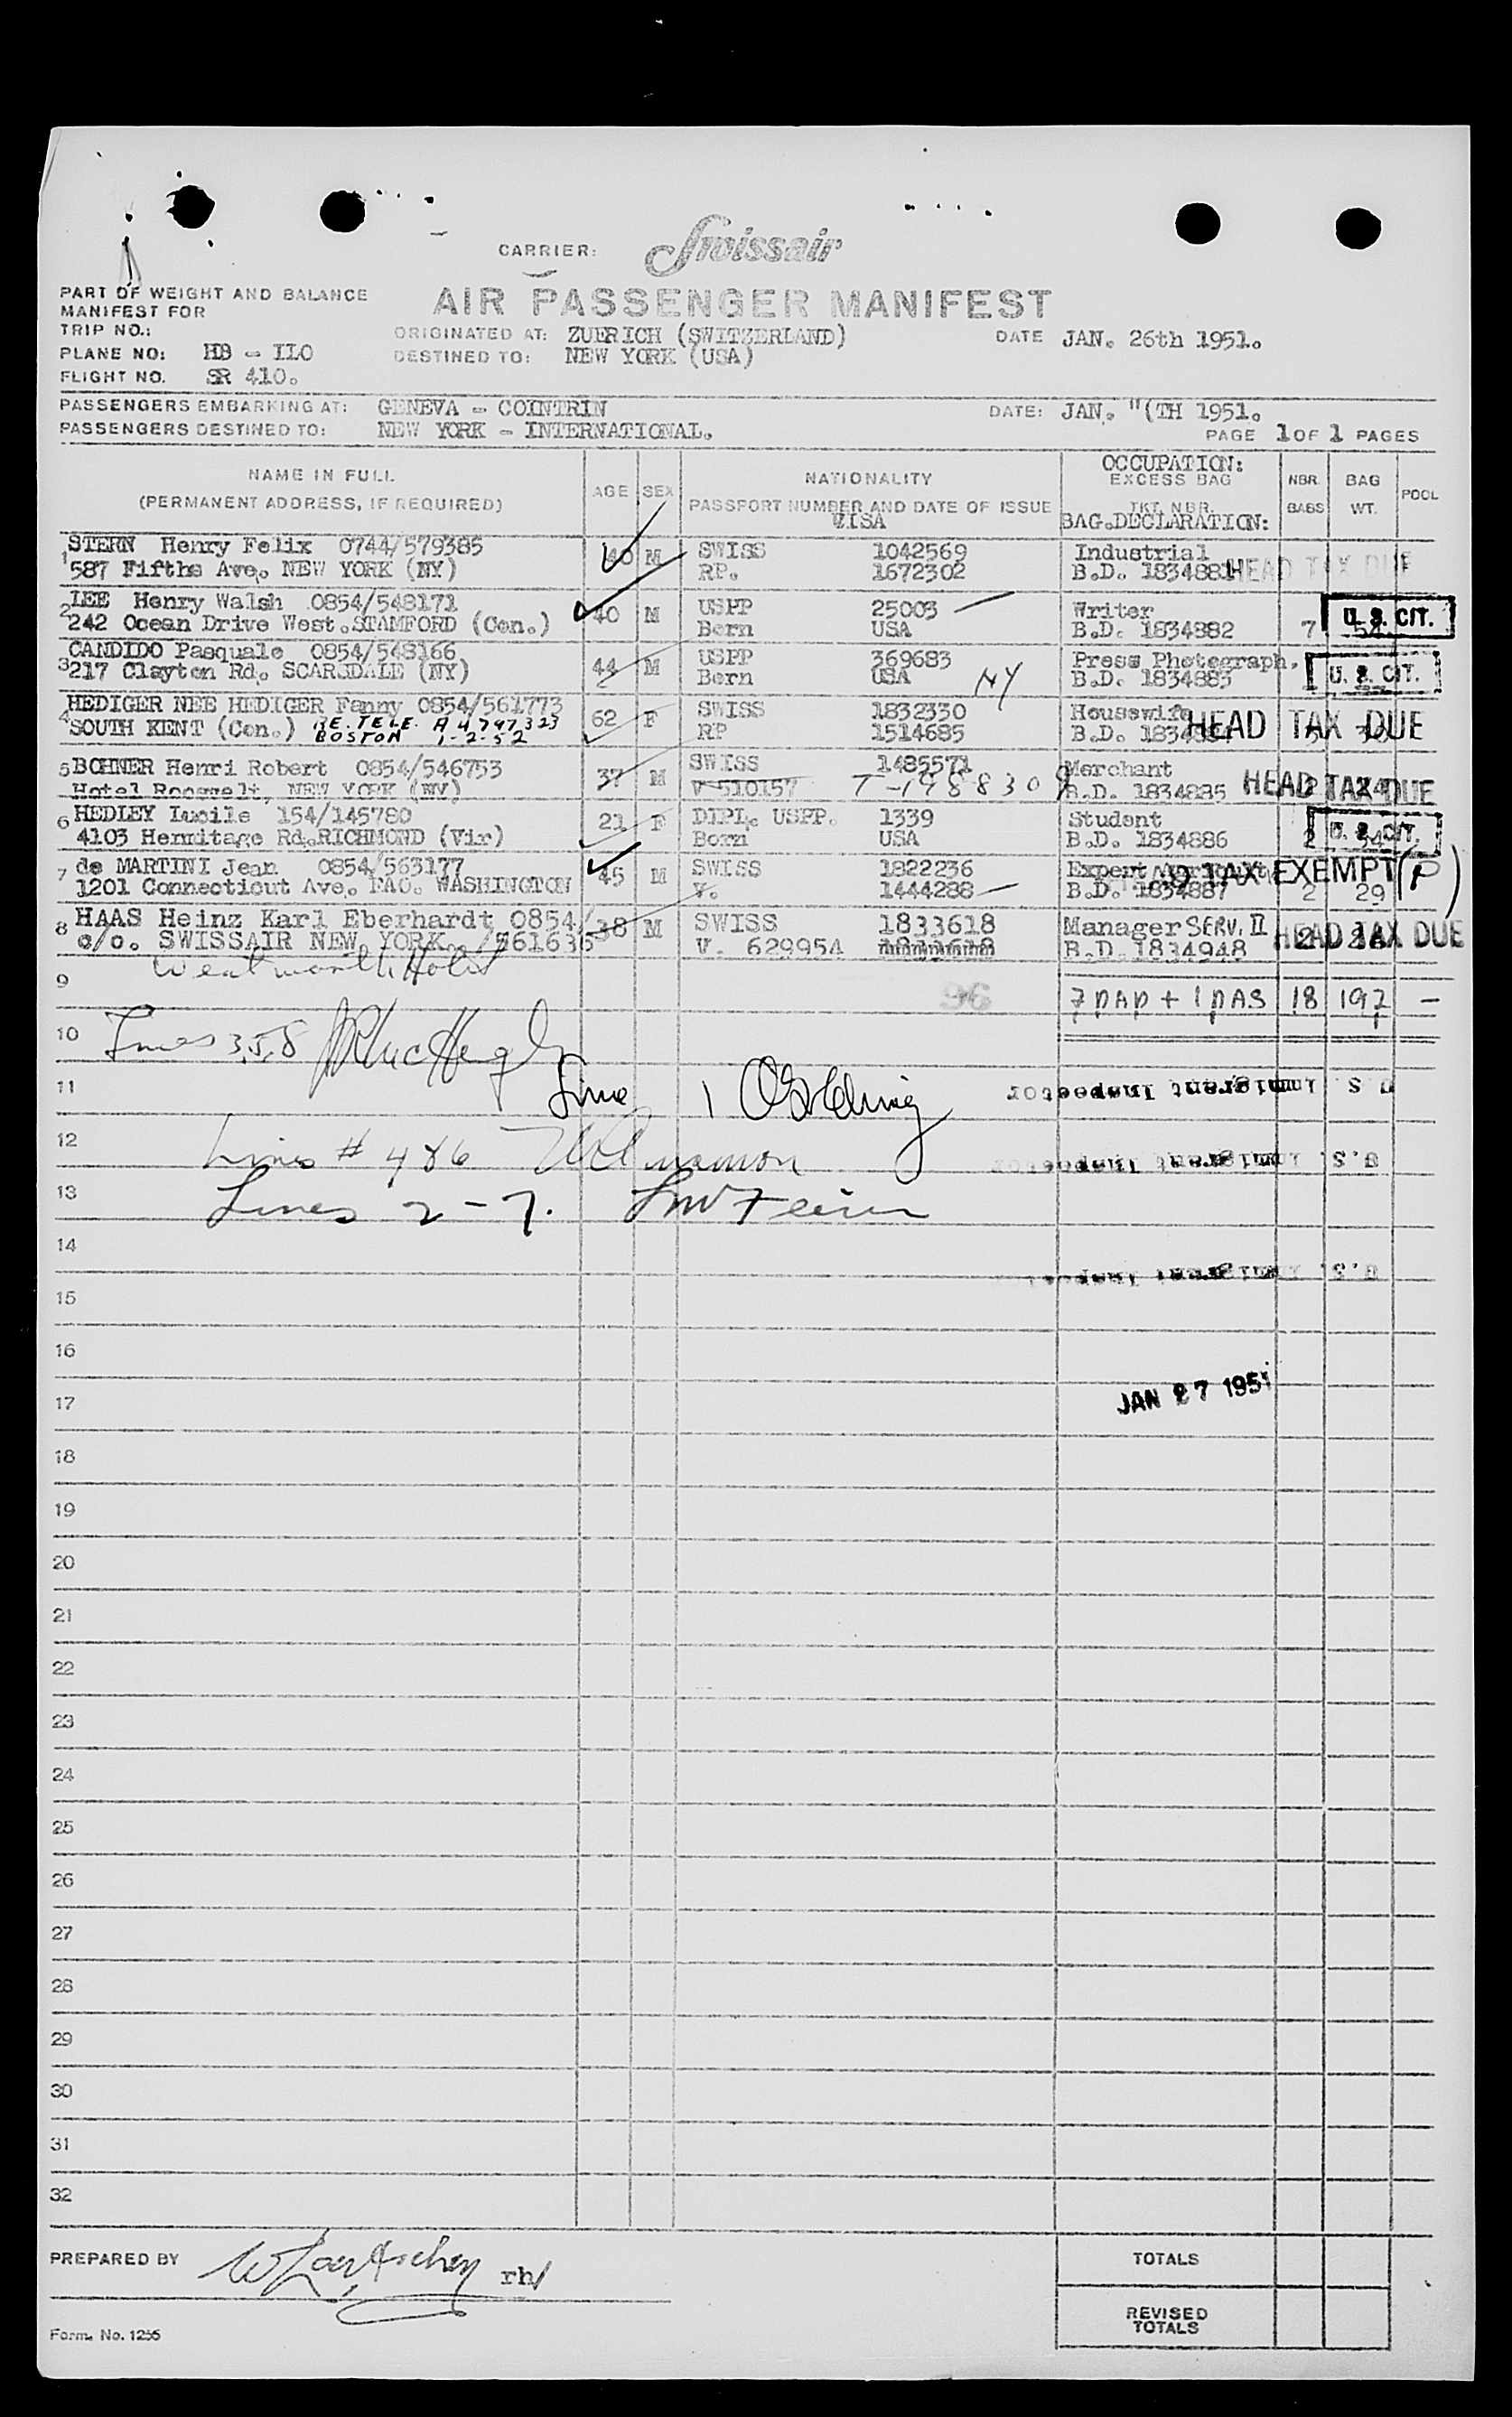 CARRIER: Swissair
PART OF WEIGHT AND BALANCE
MANIFEST FOR
AIR PASSENGER MANIFEST
TRIP NO.:
ORIGINATED AT: ZUERICH (SWITZERLAND) DATE JAN. 26th 1951.
PLANE NO: HB - ILO
DESTINED TO: NEW YORK (USA)
FLIGHT NO. SR 410.
PASSENGERS EMBARKING AT: GENEVA - COINTRIN DATE: JAN. "(TH 1951.
PASSENGERS DESTINED TO: NEW YORK - INTERNATIONAL.
PAGE 1 OF 1 PAGES
NAME IN FULL
(PERMANENT ADDRESS, IF REQUIRED)
AGE SEX
NATIONALITY
PASSPORT NUMBER AND DATE OF ISSUE
VISA
OCCUPATION:
EXCESS BAG
TKT. NBR.
BAG.DECLARATION:
NBR. BAGS
BAG WT.
POOL
1 STERN Henry Felix 0744/579385 40 M SWISS 1042569 Industrial
587 Fifths Ave. NEW YORK (NY) RP. 1672302 B.D. 1834881 HEAD TAX DUE
2 LEE Henry Walsh 0854/548171 40 M USPP 25003 Writer U. S. CIT.
242 Ocean Drive West.STAMFORD (Con.) Born USA B.D. 1834882 7
3 CANDIDO Pasquale 0854/548166 44 M USPP 369683 Press Photograph. U. S. CIT.
217 Clayton Rd. SCARSDALE (NY) Born USA NY B.D. 1834883
4 HEDIGER NEE HEDIGER Fanny 0854/561773 62 F SWISS 1832330 Housewife HEAD TAX DUE
SOUTH KENT (Con.) RE. TELE. A 4,797,323 RP 1514685 B.D. 1834884
BOSTON 1-2-52
5 BOHNER Henri Robert 0854/546753 37 M SWISS 1485571 Merchant HEAD TAX DUE
Hotel Roosvelt, NEW YORK (NY) V 510157 T-1988309 B.D. 1834885 2 24
6 HEDLEY Lucile 154/145780 21 F DIPL. USPP. 1339 Student U. S. CIT.
4103 Hermitage Rd.RICHMOND (Vir) Born USA B.D. 1834886 2
7 de MARTINI Jean 0854/563177 45 M SWISS 1822236 Expert TAX EXEMPT (P)
1201 Connecticut Ave. FAO. WASHINGTON V. 1444288 B.D. 1834887 2 29
8 HAAS Heinz Karl Eberhardt 0854/ 38 M SWISS 1833618 Manager SERV. II HEAD TAX DUE
c/o. SWISSAIR NEW YORK. /561636 V. 629954 B.D. 1834948 2
Wentworth Hotel
9
96
7 PAP + 1 PAS 18 197 —
10 Lines 3,5,8
11 Line 1
U. S. Immigrant Inspector
12 Lines # 4 & 6
U.S. Immigrant Inspector
13 Lines 2 - 7.
14
U.S. Immigrant Inspector
15
16
17 JAN 27 1951
18
19
20
21
22
23
24
25
26
27
28
29
30
31
32
PREPARED BY rh/
TOTALS
REVISED TOTALS
Form. No. 1255